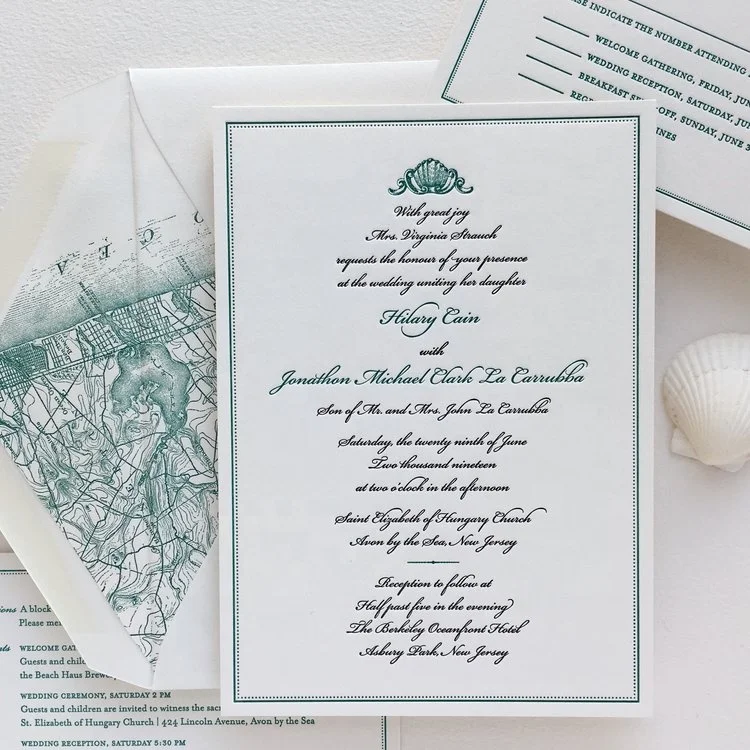 With great joy
Mrs. Virginia Strauch
requests the honour of your presence
at the wedding uniting her daughter
Hilary Cain
with
Jonathon Michael Clark La Carrubba
Son of Mr. and Mrs. John La Carrubba
Saturday, the twenty ninth of June
Two thousand nineteen
at two o'clock in the afternoon
Saint Elizabeth of Hungary Church
Avon by the Sea, New Jersey
Reception to follow at
Half past five in the evening
The Berkeley Oceanfront Hotel
Asbury Park, New Jersey
INDICATE THE NUMBER ATTENDING
WELCOME GATHERING, FRIDAY,
WEDDING RECEPTION, SATURDAY,
BREAKFAST OFF, SUNDAY, JUNE
A block
Please
WELCOME
Guests and
the Beach Haus
WEDDING CEREMONY, SATURDAY 2 PM
Guests and children are invited to witness the
St. Elizabeth of Hungary Church | 424 Lincoln Avenue, Avon by the Sea
WEDDING RECEPTION, SATURDAY 5:30 PM